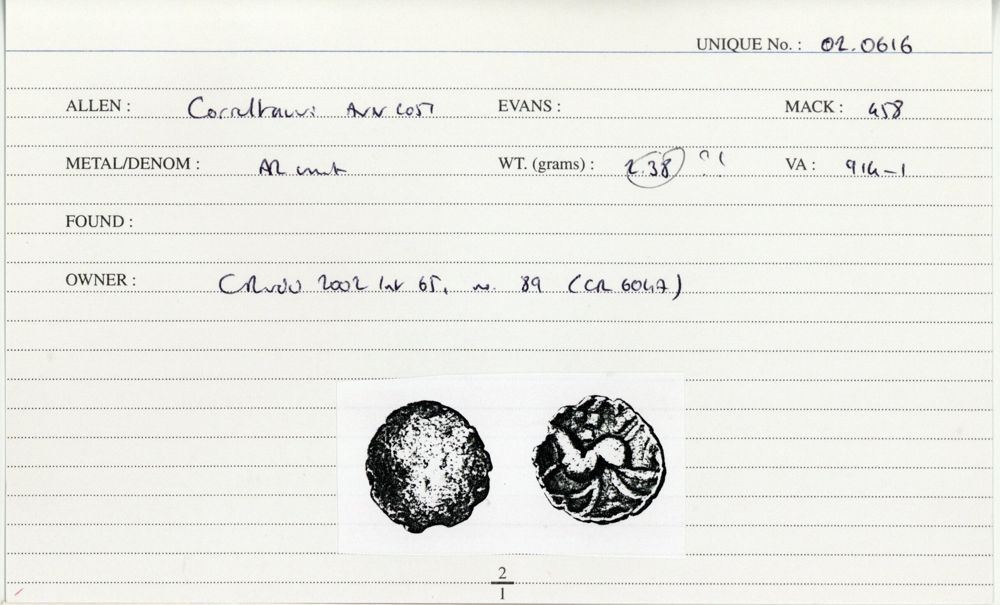 UNIQUE No. : 02.0616
ALLEN : Corieltauvi AVN COST EVANS : MACK : 458
METAL/DENOM : AR unit WT. (grams) : 2.38 ?! VA : 914-1
FOUND :
OWNER : 2002 65, no. 89 (CR 6047)
2
1